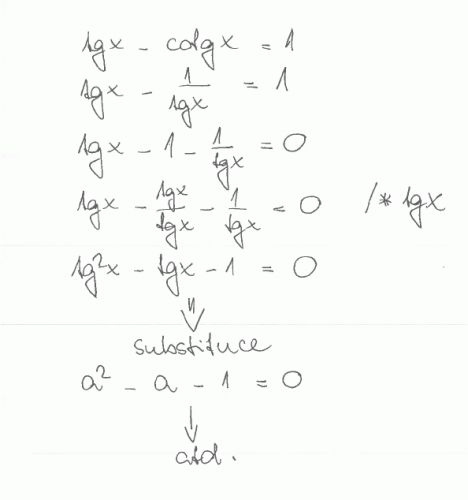 tgx - cotgx = 1
tgx - 1/tgx = 1
tgx - 1 - 1/tgx = 0
tgx - tgx/tgx - 1/tgx = 0 /* tgx
tg²x - tgx - 1 = 0
⇓
substituce
a² - a - 1 = 0
↓
atd.